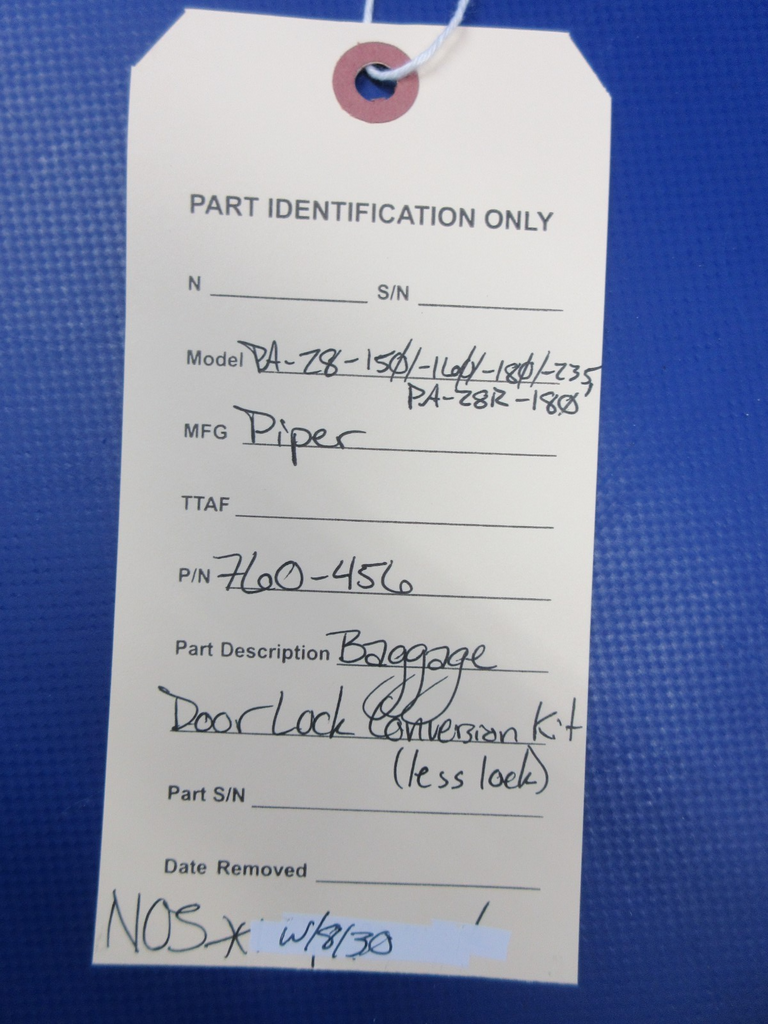 PART IDENTIFICATION ONLY
N S/N
Model PA-28-150/-160/-180/-235,
PA-28R-180
MFG Piper
TTAF
P/N 760-456
Part Description Baggage
Door Lock Conversion Kit
(less lock)
Part S/N
Date Removed
NOS * W/8/30